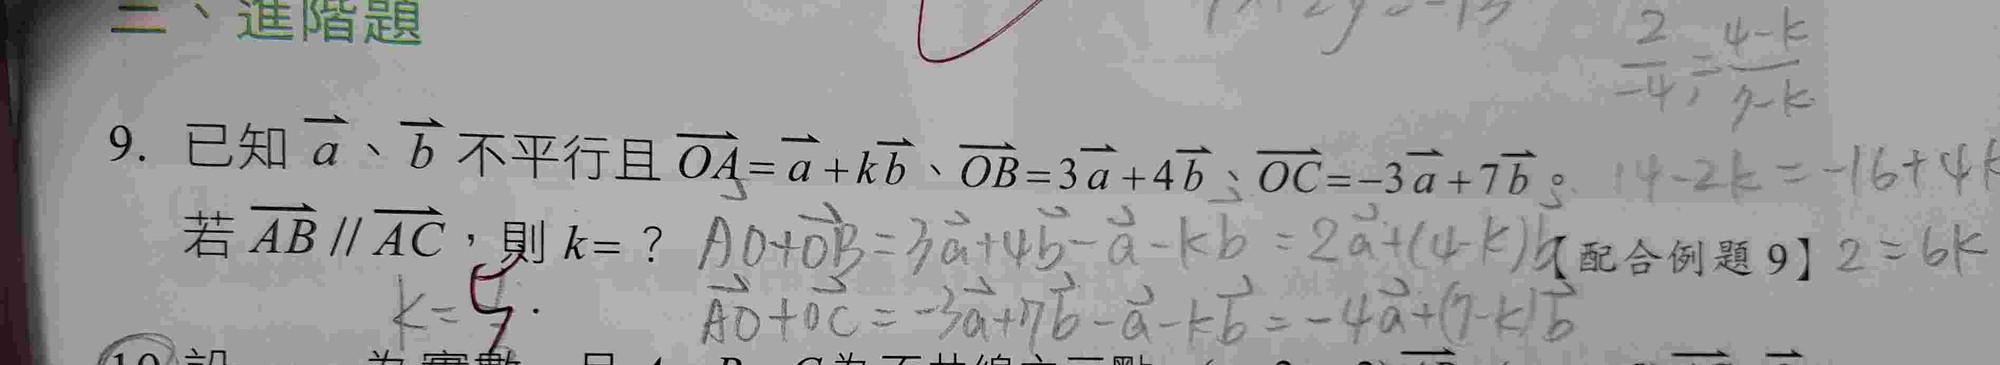 二、進階題
2/-4 = 4-k/7-k
9. 已知 a⃗、b⃗ 不平行且 OA⃗=a⃗+kb⃗、OB⃗=3a⃗+4b⃗、OC⃗=-3a⃗+7b⃗。 14-2k=-16+4k
若 AB⃗ // AC⃗，則 k=？ AO+OB⃗=3a⃗+4b⃗-a⃗-kb⃗=2a⃗+(4-k)b⃗ 【配合例題 9】 2=6k
k=5. AO⃗+OC⃗=-3a⃗+7b⃗-a⃗-kb⃗=-4a⃗+(7-k)b⃗